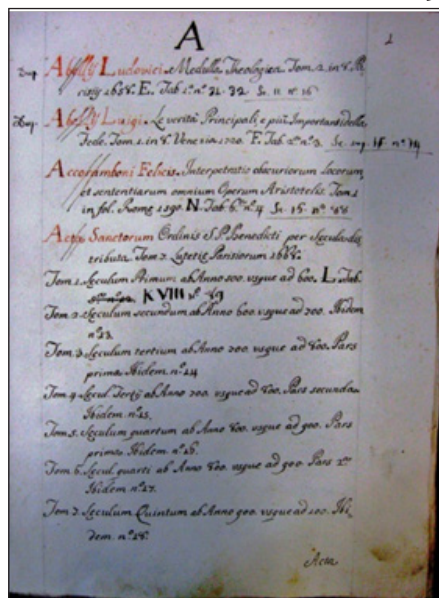 A
1
Dup. Abelly Ludovici. Medulla Theologica. Tom. 2. in 8. Pa
risijs 1658. E. Tab. 1.ª nº 31. 32. Sc. 11 nº 16
Abelly Luigi. Le verità Principali, e più Importanti della
Fede. Tom. 1. in 8. Venezia F. Tab. 2.ª nº 3.
Accoramboni Felicis. Interpretatio obscuriorum Locorum
et sententiarum omnium Operum Aristotelis. Tom. 1
in fol. Romę 1590. N. Tab. 6.ª nº 4
Acta Sanctorum Ordinis S. P. Benedicti per Sæcula dis
tributa. Tom. 7. Lutetię Parisiorum 1668.
Tom. 1. Sęculum Primum ab Anno 500. usque ad 600. L. Tab.
K VIII nº
Tom. 2. Sęculum secundum ab Anno 600. usque ad 700. Ibidem
nº 13.
Tom. 3. Sęculum tertium ab Anno 700. usque ad 800. Pars
prima. Ibidem. nº 14
Tom. 4. Sęcul. Tertij ab Anno 700. usque ad 800. Pars secunda.
Ibidem. nº 15.
Tom. 5. Sęculum quartum ab Anno 800. usque ad 900. Pars
prima. Ibidem. nº 16.
Tom. 6. Sęcul. quarti ab Anno 800. usque ad 900. Pars 2.ª
Ibidem. nº 17.
Tom. 7. Sęculum Quintum ab Anno 900. usque ad Ibi
dem. nº 18.
Acta